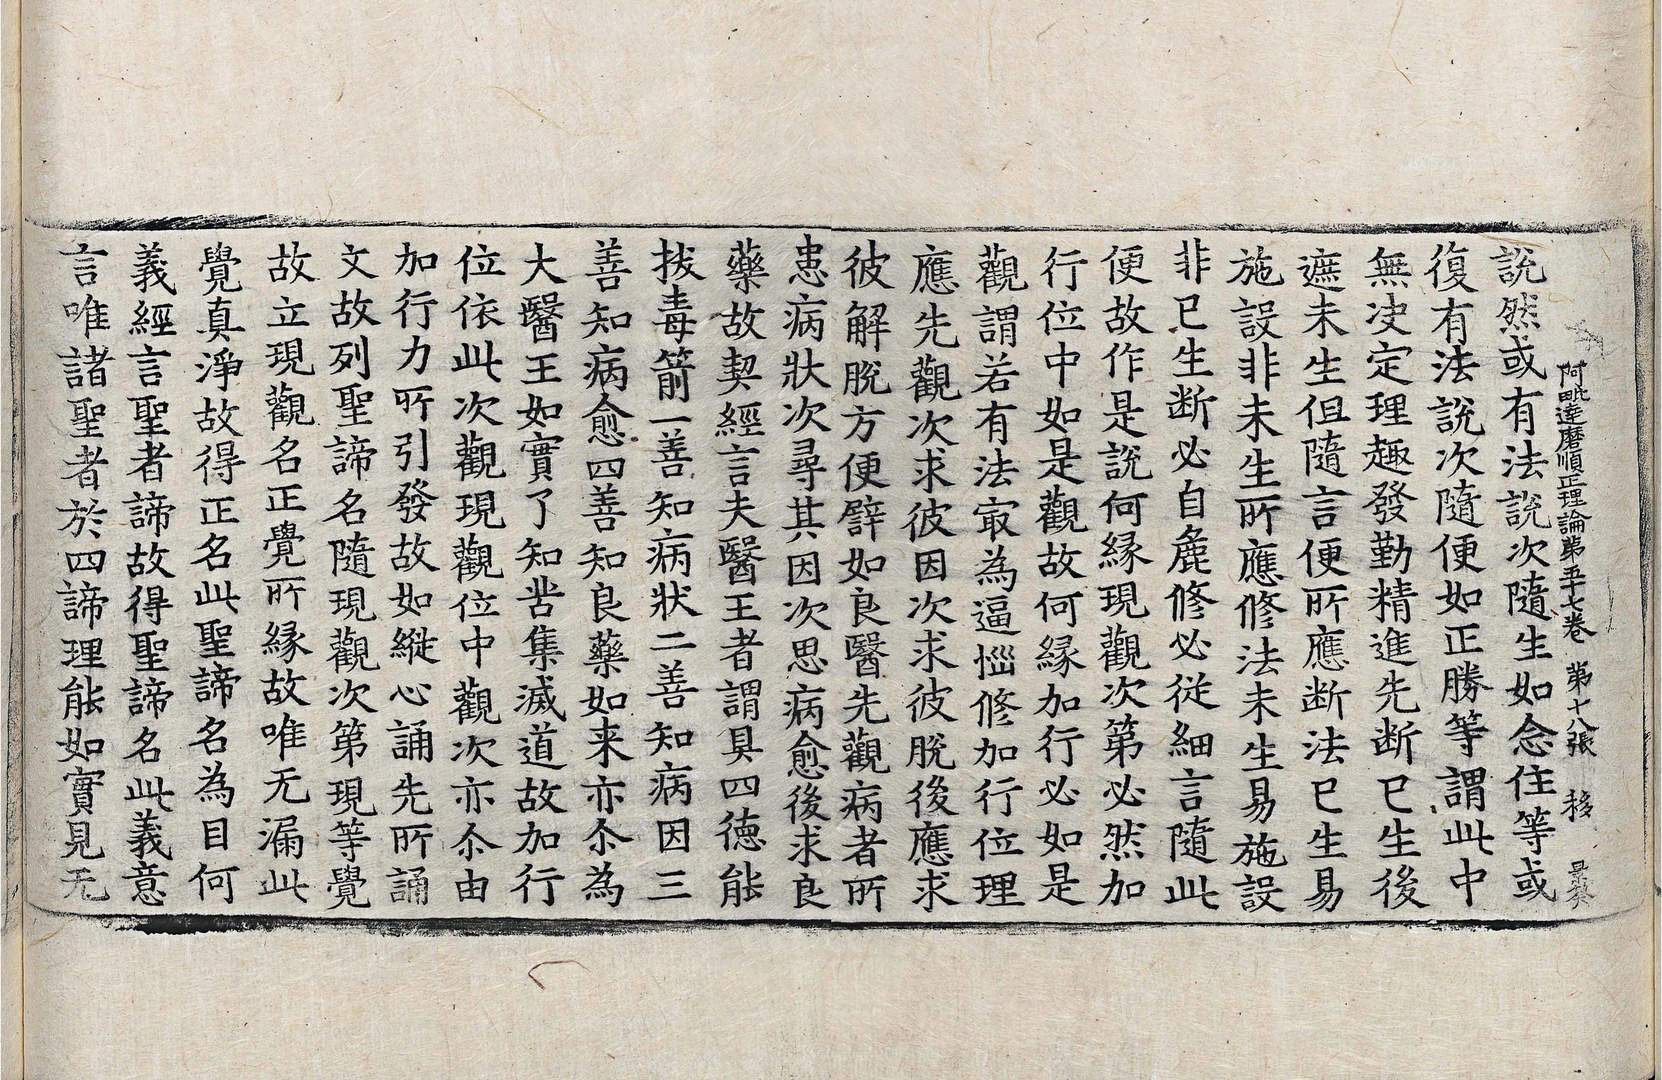 阿毗達磨順正理論第五十七卷 第十八張 移
說然或有法說次隨生如念住等或
復有法說次隨便如正勝等謂此中
無決定理趣發勤精進先断已生後
遮未生但隨言便所應断法已生易
施設非未生所應修法未生易施設
非已生断必自麁修必從細言隨此
便故作是說何縁現觀次第必然加
行位中如是觀故何縁加行必如是
觀謂若有法冣為逼惱修加行位理
應先觀次求彼因次求彼脫後應求
彼解脫方便譬如良醫先觀病者所
患病狀次尋其因次思病愈後求良
藥故契經言夫醫王者謂具四德能
拔毒箭一善知病狀二善知病因三
善知病愈四善知良藥如来亦尒為
大醫王如實了知苦集滅道故加行
位依此次觀現觀位中觀次亦尒由
加行力所引發故如縱心誦先所誦
文故列聖諦名隨現觀次第現等覺
故立現觀名正覺所縁故唯无漏此
覺真淨故得正名此聖諦名為目何
義經言聖者諦故得聖諦名此義意
言唯諸聖者於四諦理能如實見无